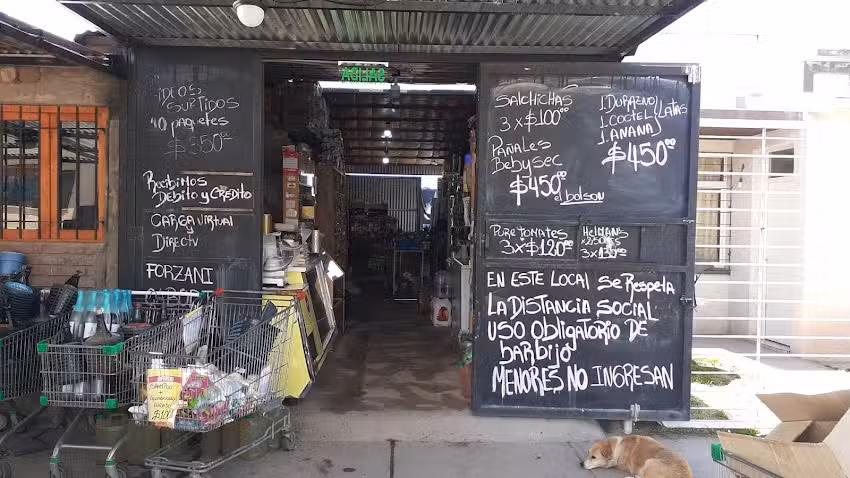 SALIDA
iDEOS
SURTIDOS
40 paquetes
$350.00
Recibimos
DÉBito y CRÉDITO
CARGA VIRTUAL
y
DIRECTV
FORZANI
SALCHICHAS
3 x $100.00
PAÑALES
BebySEC
$450.00
el bolson
1.DURAZNO
1.COCTEL LATAS
1.ANANA
$450.00
PURE TOMATES
3x$120.00
HELMANS
EN ESTE LOCAL Se Respeta
LA DISTANCIA SOCIAL
USO ObligATORIO DE
barbijo
MENORES NO INGRESAN